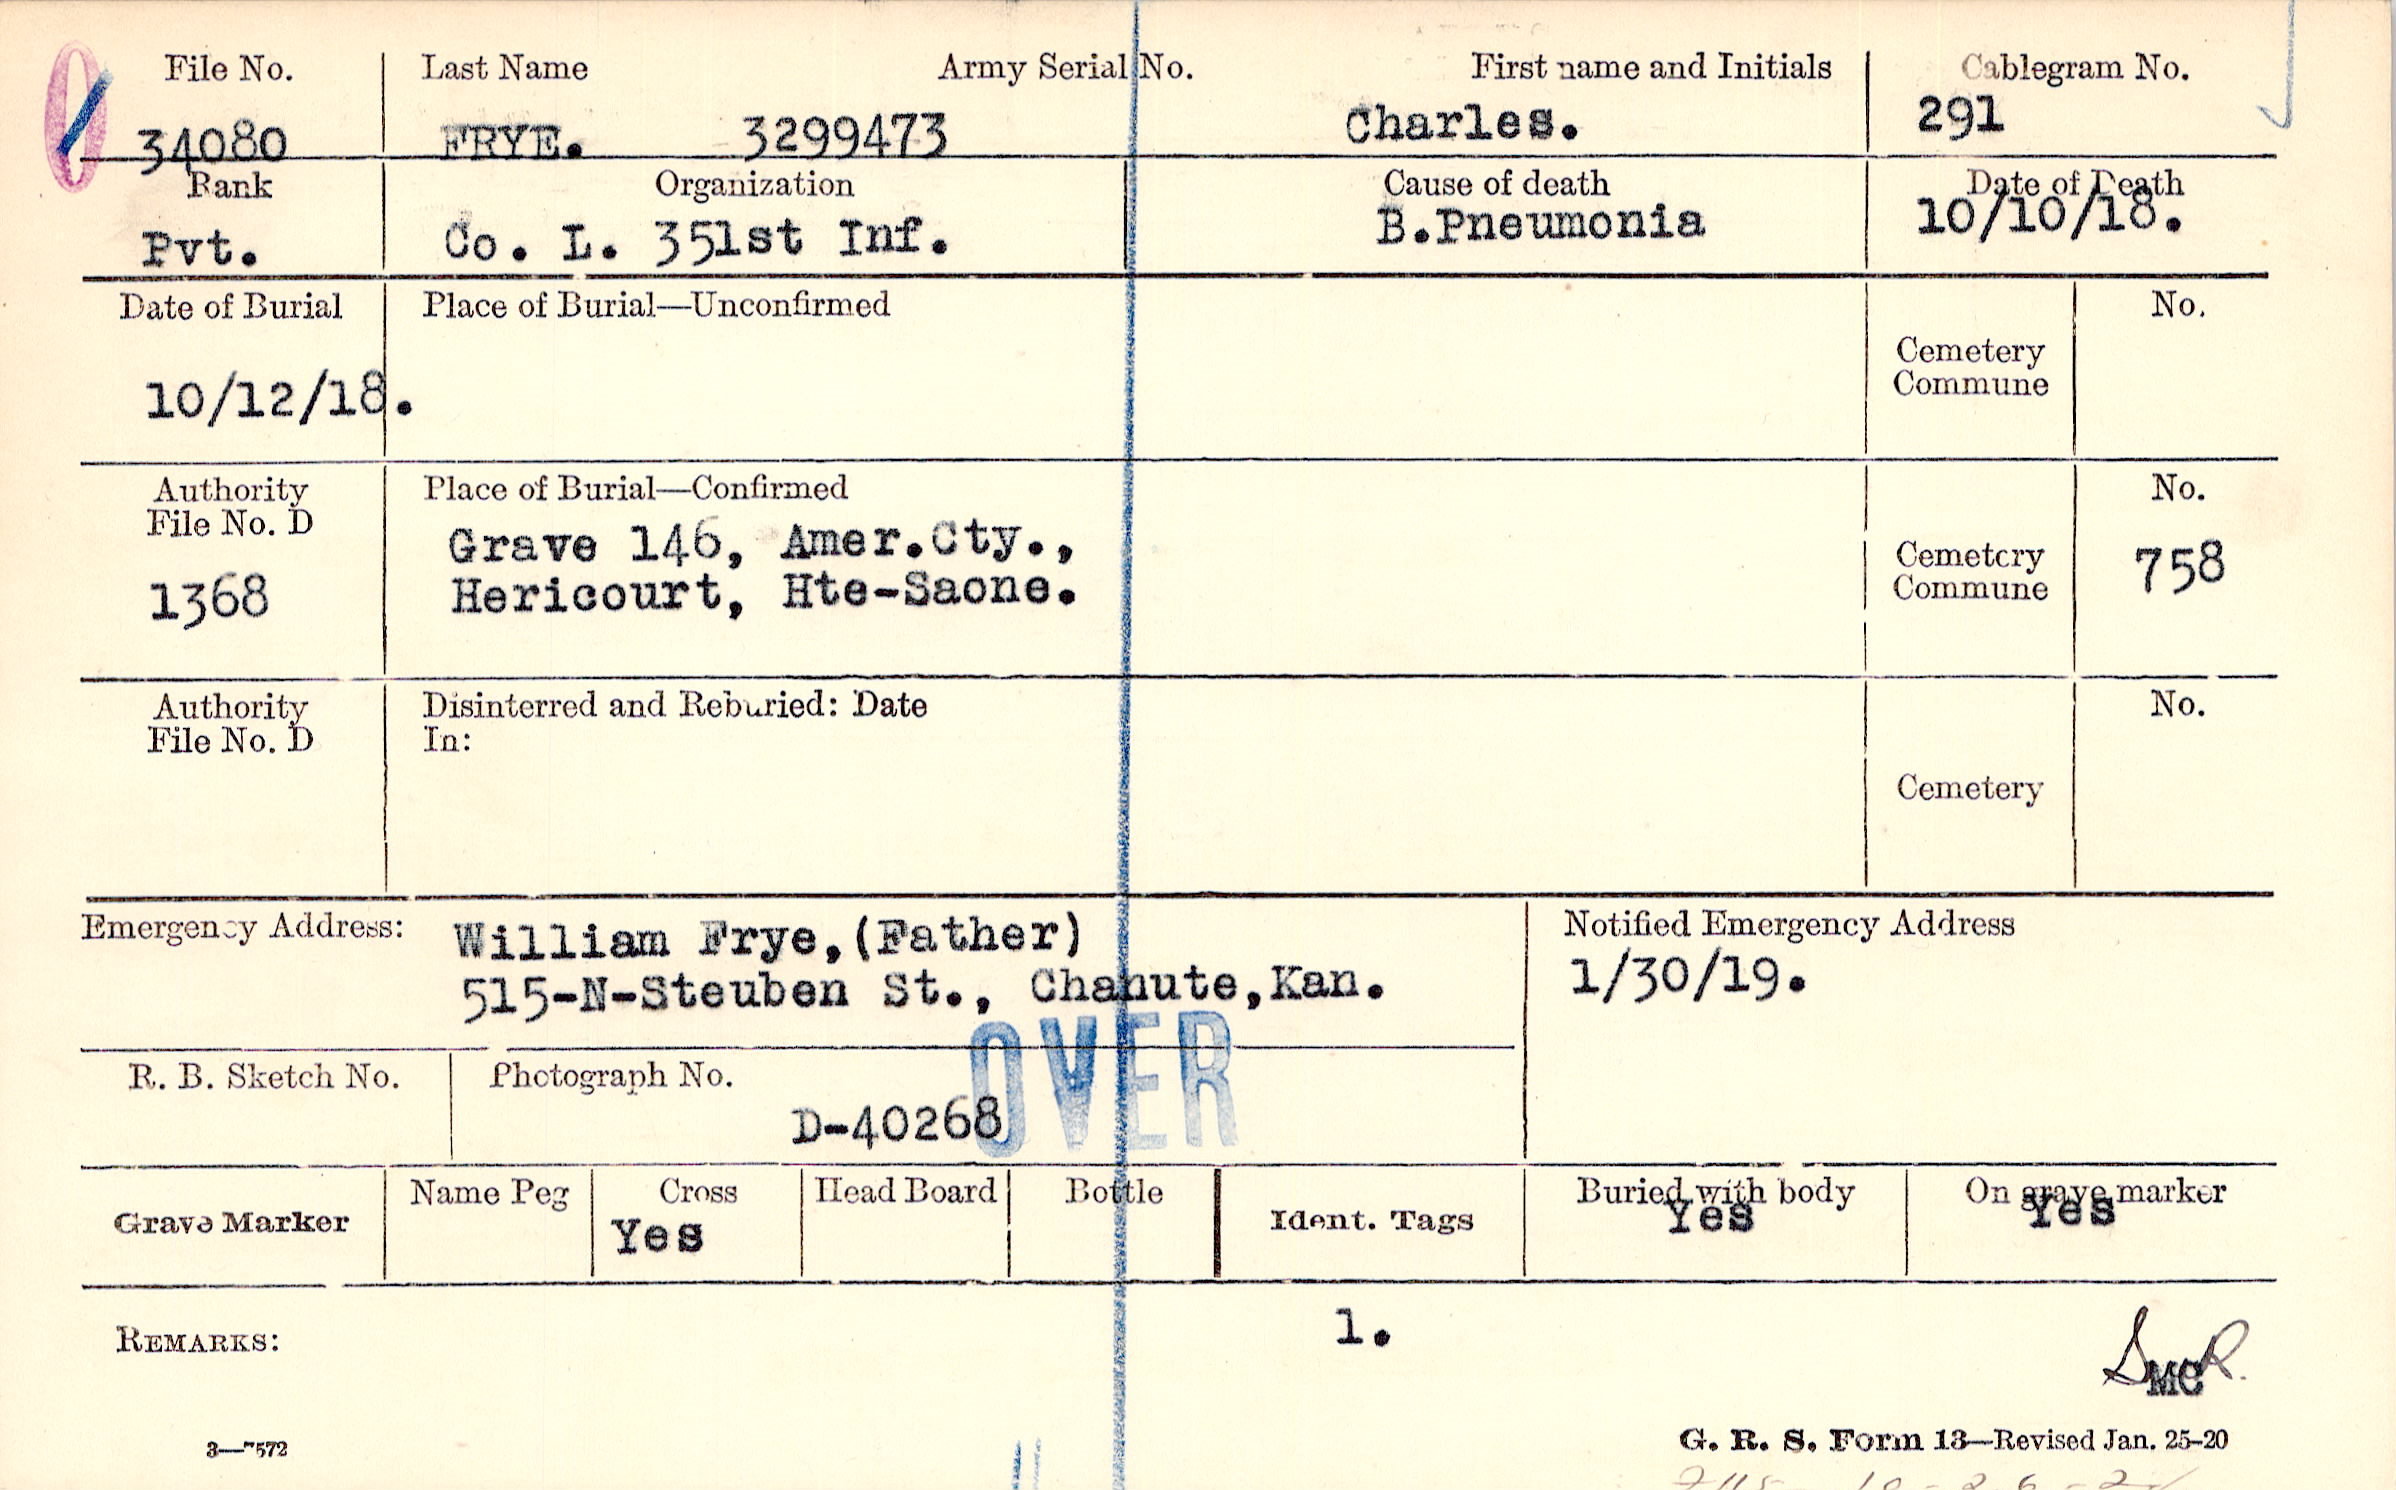 File No. Last Name Army Serial No. First name and Initials Cablegram No.
34080 FRYE. 3299473 Charles. 291
Rank Organization Cause of death Date of Death
Pvt. Co. L. 351st Inf. B.Pneumonia 10/10/18.
Date of Burial Place of Burial—Unconfirmed No.
Cemetery
Commune
10/12/18.
Authority Place of Burial—Confirmed No.
File No. D
Grave 146, Amer.Cty.,
Cemetery
Commune 758
1368 Hericourt, Hte-Saone.
Authority Disinterred and Reburied: Date No.
File No. D In:
Cemetery
Emergency Address: William Frye,(Father) Notified Emergency Address
515-N-Steuben St., Chanute,Kan. 1/30/19.
OVER
R. B. Sketch No. Photograph No.
D-40268
Grave Marker Name Peg Cross Head Board Bottle Ident. Tags Buried with body On grave marker
Yes Yes Yes
1.
REMARKS:
MC
3—7572 G. R. S. Form 13—Revised Jan. 25-20